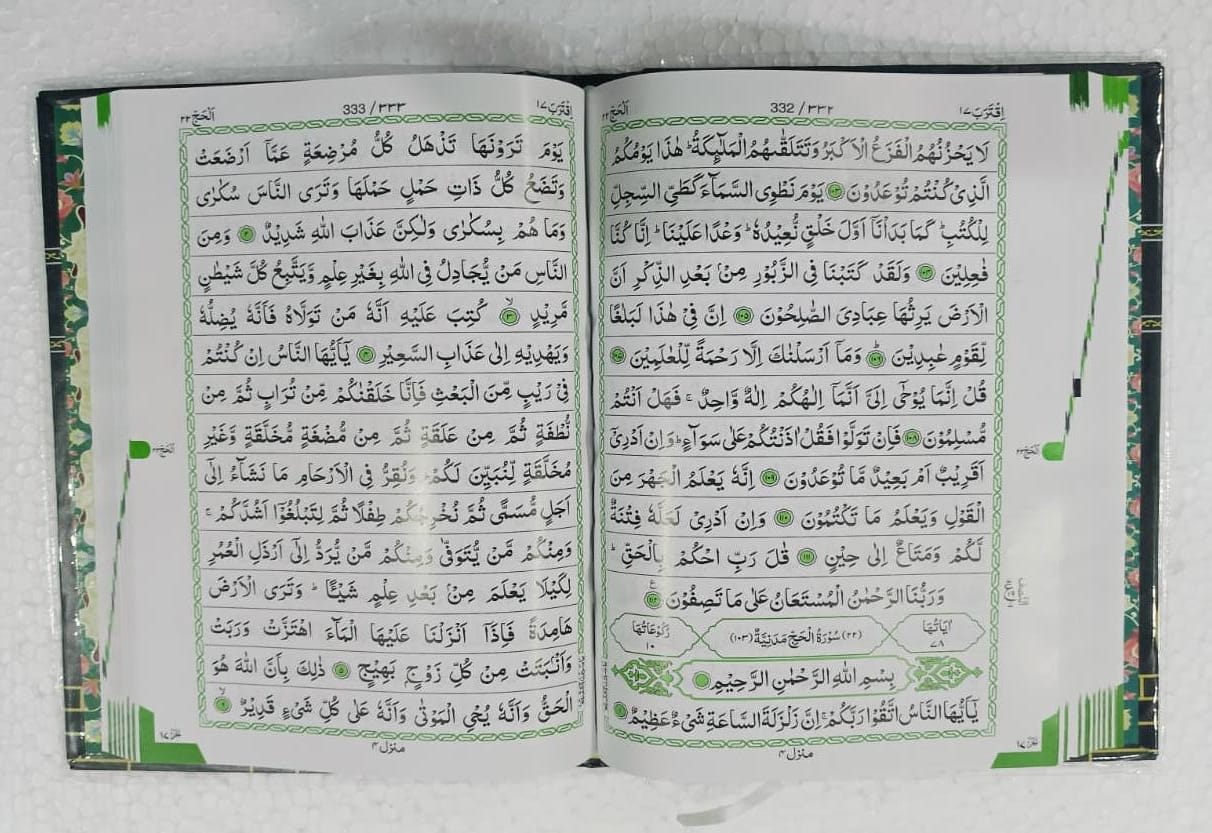 اِقْتَرَبَ ١٧
332 / ٣٣٢
اَلْحَجّ ٢٢
لَا يَحْزُنُهُمُ الْفَزَعُ الْاَكْبَرُ وَتَتَلَقّٰىهُمُ الْمَلٰٓئِكَةُ ؕ هٰذَا يَوْمُكُمُ
الَّذِىْ كُنْتُمْ تُوْعَدُوْنَ ۝۱۰۳ يَوْمَ نَطْوِى السَّمَآءَ كَطَىِّ السِّجِلِّ
لِلْكُتُبِ ؕ كَمَا بَدَاْنَاۤ اَوَّلَ خَلْقٍ نُّعِيْدُهٗ ؕ وَعْدًا عَلَيْنَا ؕ اِنَّا كُنَّا
فٰعِلِيْنَ ۝۱۰۴ وَلَقَدْ كَتَبْنَا فِى الزَّبُوْرِ مِنْۢ بَعْدِ الذِّكْرِ اَنَّ
الْاَرْضَ يَرِثُهَا عِبَادِىَ الصّٰلِحُوْنَ ۝۱۰۵ اِنَّ فِىْ هٰذَا لَبَلٰغًا
لِّقَوْمٍ عٰبِدِيْنَ ۝۱۰۶ وَمَاۤ اَرْسَلْنٰكَ اِلَّا رَحْمَةً لِّلْعٰلَمِيْنَ ۝۱۰۷
قُلْ اِنَّمَا يُوْحٰۤى اِلَىَّ اَنَّمَاۤ اِلٰهُكُمْ اِلٰهٌ وَّاحِدٌ ۚ فَهَلْ اَنْتُمْ
مُّسْلِمُوْنَ ۝۱۰۸ فَاِنْ تَوَلَّوْا فَقُلْ اٰذَنْتُكُمْ عَلٰى سَوَآءٍ ؕ وَاِنْ اَدْرِىْۤ
اَقَرِيْبٌ اَمْ بَعِيْدٌ مَّا تُوْعَدُوْنَ ۝۱۰۹ اِنَّهٗ يَعْلَمُ الْجَهْرَ مِنَ
الْقَوْلِ وَيَعْلَمُ مَا تَكْتُمُوْنَ ۝۱۱۰ وَاِنْ اَدْرِىْ لَعَلَّهٗ فِتْنَةٌ
لَّكُمْ وَمَتَاعٌ اِلٰى حِيْنٍ ۝۱۱۱ قٰلَ رَبِّ احْكُمْ بِالْحَقِّ ؕ
وَرَبُّنَا الرَّحْمٰنُ الْمُسْتَعَانُ عَلٰى مَا تَصِفُوْنَ ۝۱۱۲
اٰيَاتُهَا ٧٨
(٢٢) سُوْرَةُ الْحَجِّ مَدَنِيَّةٌ (١٠٣)
رُكُوْعَاتُهَا ١٠
بِسْمِ اللّٰهِ الرَّحْمٰنِ الرَّحِيْمِ
يٰۤاَيُّهَا النَّاسُ اتَّقُوْا رَبَّكُمْ ۚ اِنَّ زَلْزَلَةَ السَّاعَةِ شَىْءٌ عَظِيْمٌ ۝۱
مَنْزِل ٤
اَلْحَجّ ٢٢
اِقْتَرَبَ ١٧
333 / ٣٣٣
اَلْحَجّ ٢٢
يَوْمَ تَرَوْنَهَا تَذْهَلُ كُلُّ مُرْضِعَةٍ عَمَّاۤ اَرْضَعَتْ
وَتَضَعُ كُلُّ ذَاتِ حَمْلٍ حَمْلَهَا وَتَرَى النَّاسَ سُكٰرٰى
وَمَا هُمْ بِسُكٰرٰى وَلٰكِنَّ عَذَابَ اللّٰهِ شَدِيْدٌ ۝۲ وَمِنَ
النَّاسِ مَنْ يُّجَادِلُ فِى اللّٰهِ بِغَيْرِ عِلْمٍ وَّيَتَّبِعُ كُلَّ شَيْطٰنٍ
مَّرِيْدٍ ۝۳ كُتِبَ عَلَيْهِ اَنَّهٗ مَنْ تَوَلَّاهُ فَاَنَّهٗ يُضِلُّهٗ
وَيَهْدِيْهِ اِلٰى عَذَابِ السَّعِيْرِ ۝۴ يٰۤاَيُّهَا النَّاسُ اِنْ كُنْتُمْ
فِىْ رَيْبٍ مِّنَ الْبَعْثِ فَاِنَّا خَلَقْنٰكُمْ مِّنْ تُرَابٍ ثُمَّ مِنْ
نُّطْفَةٍ ثُمَّ مِنْ عَلَقَةٍ ثُمَّ مِنْ مُّضْغَةٍ مُّخَلَّقَةٍ وَّغَيْرِ
مُخَلَّقَةٍ لِّنُبَيِّنَ لَكُمْ ؕ وَنُقِرُّ فِى الْاَرْحَامِ مَا نَشَآءُ اِلٰۤى
اَجَلٍ مُّسَمًّى ثُمَّ نُخْرِجُكُمْ طِفْلًا ثُمَّ لِتَبْلُغُوْۤا اَشُدَّكُمْ ۚ
وَمِنْكُمْ مَّنْ يُّتَوَفّٰى وَمِنْكُمْ مَّنْ يُّرَدُّ اِلٰۤى اَرْذَلِ الْعُمُرِ
لِكَيْلَا يَعْلَمَ مِنْۢ بَعْدِ عِلْمٍ شَيْـًٔا ؕ وَتَرَى الْاَرْضَ
هَامِدَةً فَاِذَاۤ اَنْزَلْنَا عَلَيْهَا الْمَآءَ اهْتَزَّتْ وَرَبَتْ
وَاَنْۢبَتَتْ مِنْ كُلِّ زَوْجٍۢ بَهِيْجٍ ۝۵ ذٰلِكَ بِاَنَّ اللّٰهَ هُوَ
الْحَقُّ وَاَنَّهٗ يُحْىِ الْمَوْتٰى وَاَنَّهٗ عَلٰى كُلِّ شَىْءٍ قَدِيْرٌ ۝۶
مَنْزِل ٤
اَلْحَجّ ٢٢